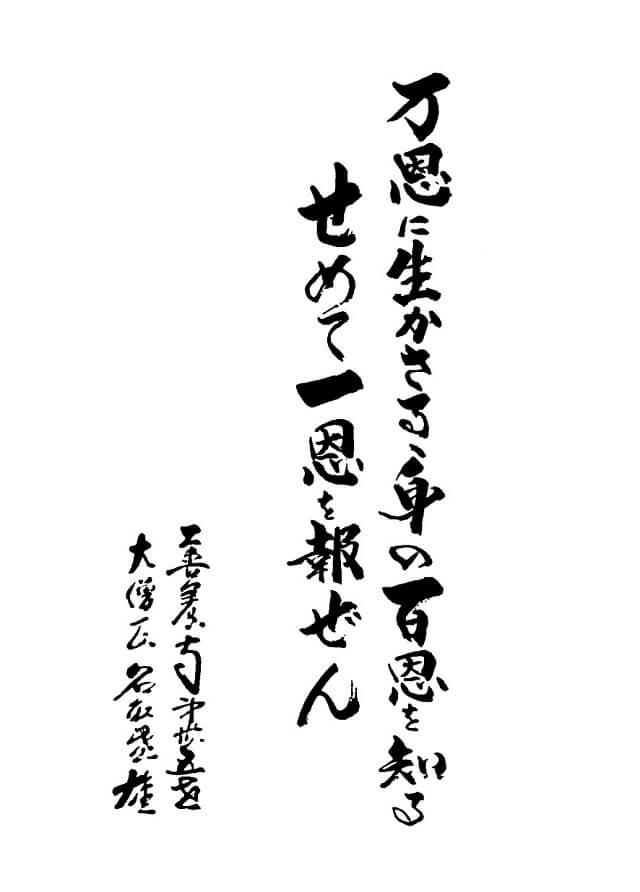 万恩に生かさるゝ身の百恩を知る
せめて一恩を報ぜん
善養寺第卅五世
大僧正名取盛雄